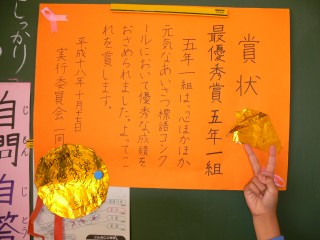 賞状
最優秀賞 五年一組
五年一組は、心ほかほか
元気なあいさつ標語コンク
ールにおいて優秀な成績を
おさめられました。よってこ
れを賞します。
平成十八年十月十七日
実行委員会一同
しっかり
自問自答
じもんじ